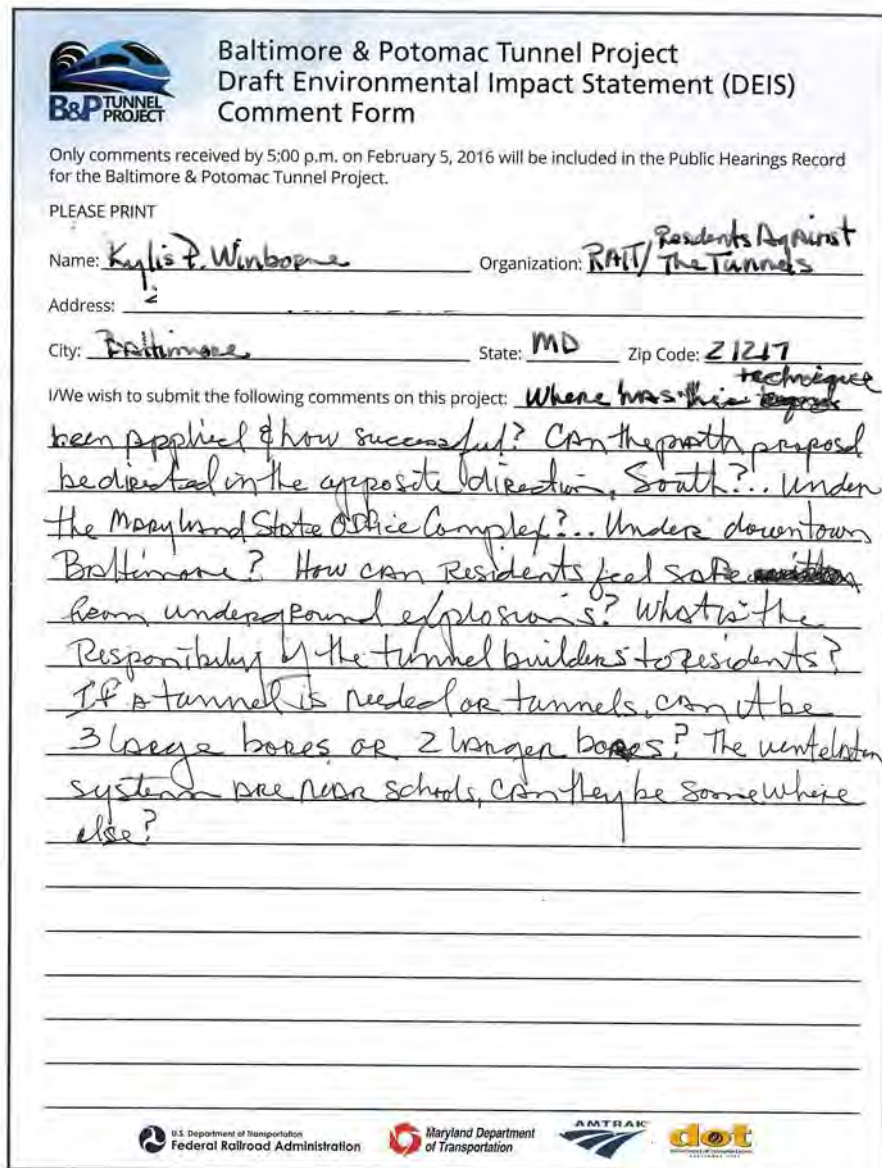 B&P TUNNEL PROJECT
Baltimore & Potomac Tunnel Project
Draft Environmental Impact Statement (DEIS)
Comment Form
Only comments received by 5:00 p.m. on February 5, 2016 will be included in the Public Hearings Record
for the Baltimore & Potomac Tunnel Project.
PLEASE PRINT
Name: Kylis P. Winborne Organization: RATT/ Residents Against The Tunnels
Address:
City: Baltimore State: MD Zip Code: 21217
I/We wish to submit the following comments on this project: Where has this technique
been applied & how successful? Can the path proposed
be directed in the opposite direction, South?.. Under
the Maryland State Office Complex?... Under downtown
Baltimore? How can Residents feel safe
from underground explosions? What is the
Responsibility of the tunnel builders to residents?
If a tunnel is needed or tunnels, can it be
3 large bores or 2 larger bores? The ventelation
systems are near schools, can they be somewhere
else?
U.S. Department of Transportation
Federal Railroad Administration
Maryland Department
of Transportation
AMTRAK
dot